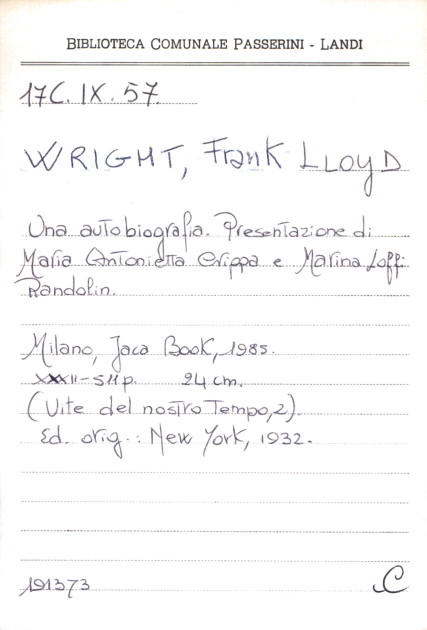 BIBLIOTECA COMUNALE PASSERINI - LANDI
17C. IX. 57.
WRIGHT, Frank LLOYD
Una autobiografia. Presentazione di
Maria Antonietta Crippa e Marina Loffi
Randolin.
Milano, Jaca Book, 1985.
XXXII-511 p. 24 cm.
(Vite del nostro Tempo, 2).
Ed. orig.: New York, 1932.
191373 C